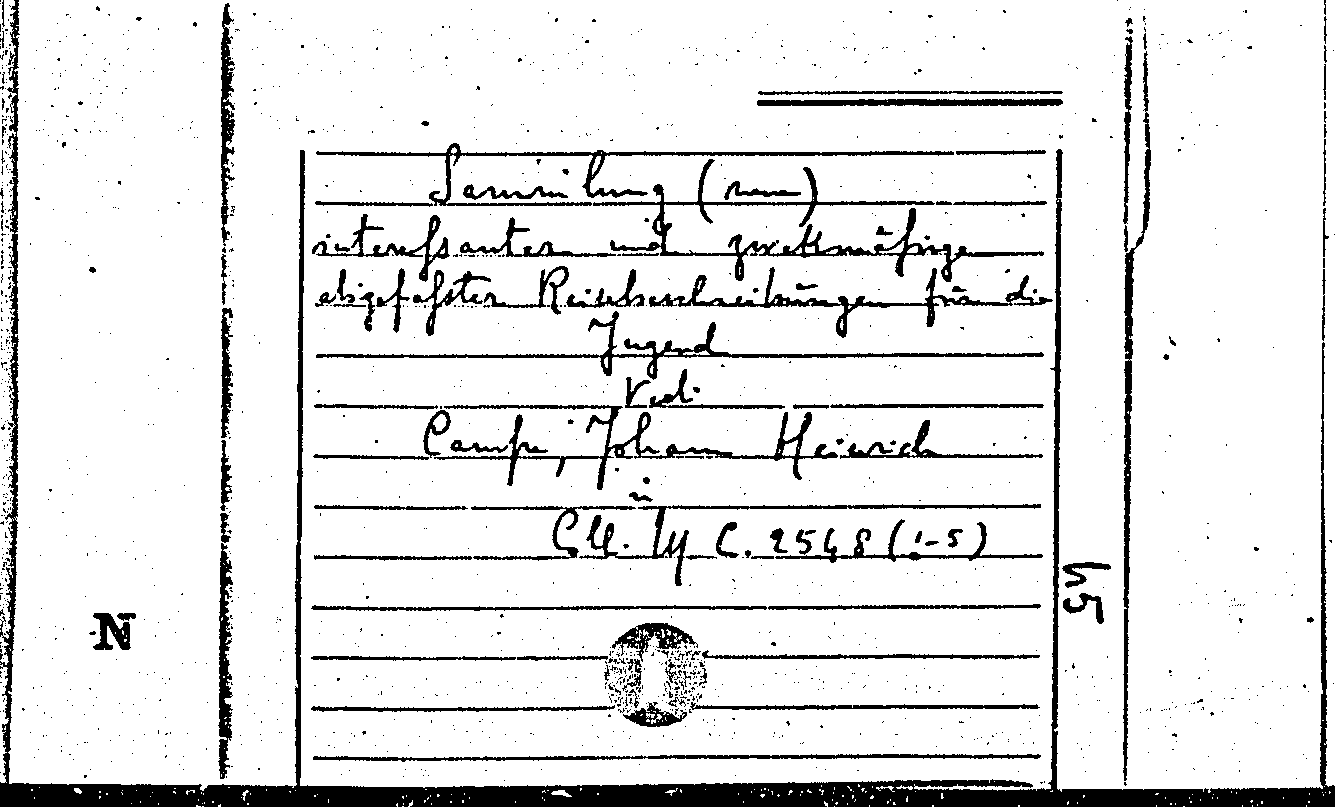 Sammlung (neue)
interessanter und zwekmäßig
abgefaßter Reisebeschreibungen für die
Jugend
Vedi
Campe, Johann Heinrich
in
Coll. C. 2548 (1-5)
N